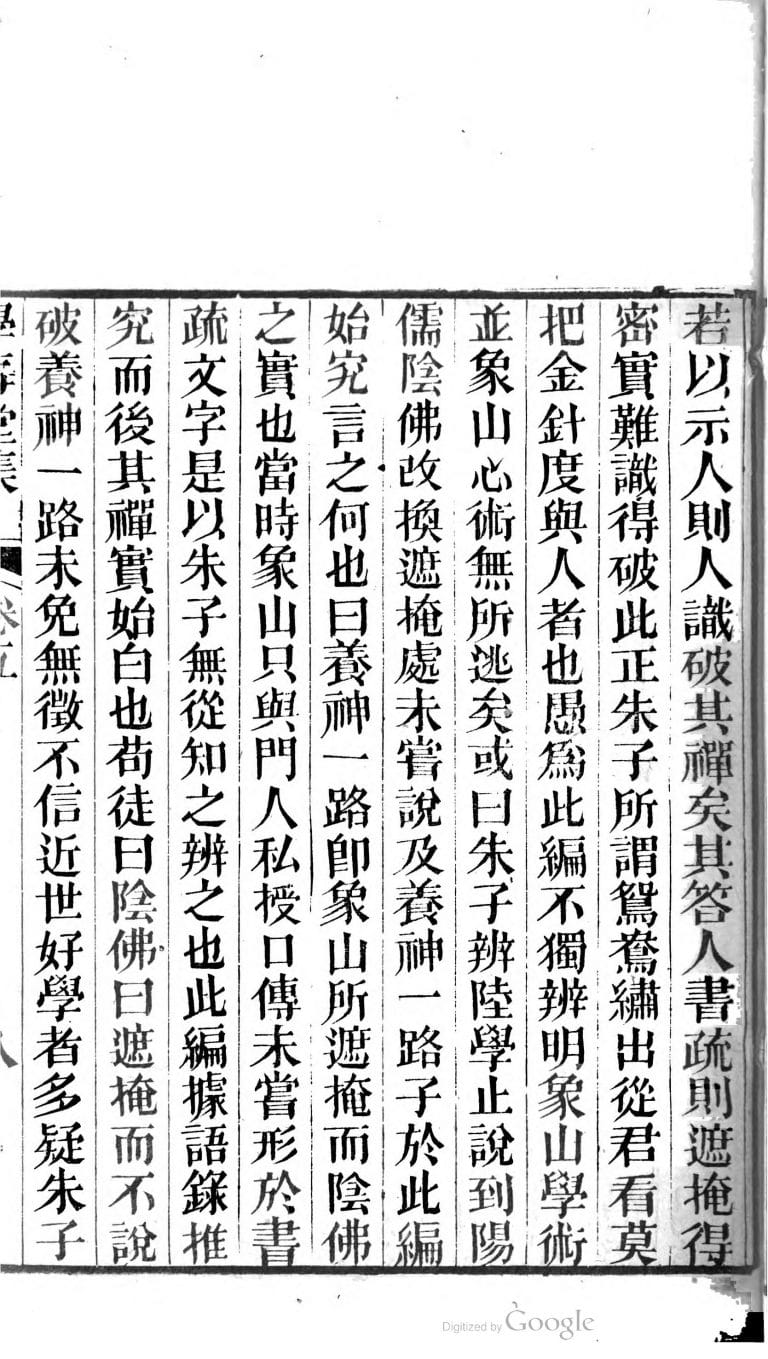 若以示人則人識破其禪矣其答人書疏則遮掩得
密實難識得破此正朱子所謂鴛鴦繡出從君看莫
把金針度與人者也愚爲此編不獨辨明象山學術
並象山心術無所逃矣或曰朱子辨陸學止說到陽
儒陰佛改換遮掩處未嘗說及養神一路子於此編
始究言之何也曰養神一路卽象山所遮掩而陰佛
之實也當時象山只與門人私授口傳未嘗形於書
疏文字是以朱子無從知之辨之也此編據語錄推
究而後其禪實始白也苟徒曰陰佛曰遮掩而不說
破養神一路未免無徵不信近世好學者多疑朱子
卷五
八
Digitized by Google